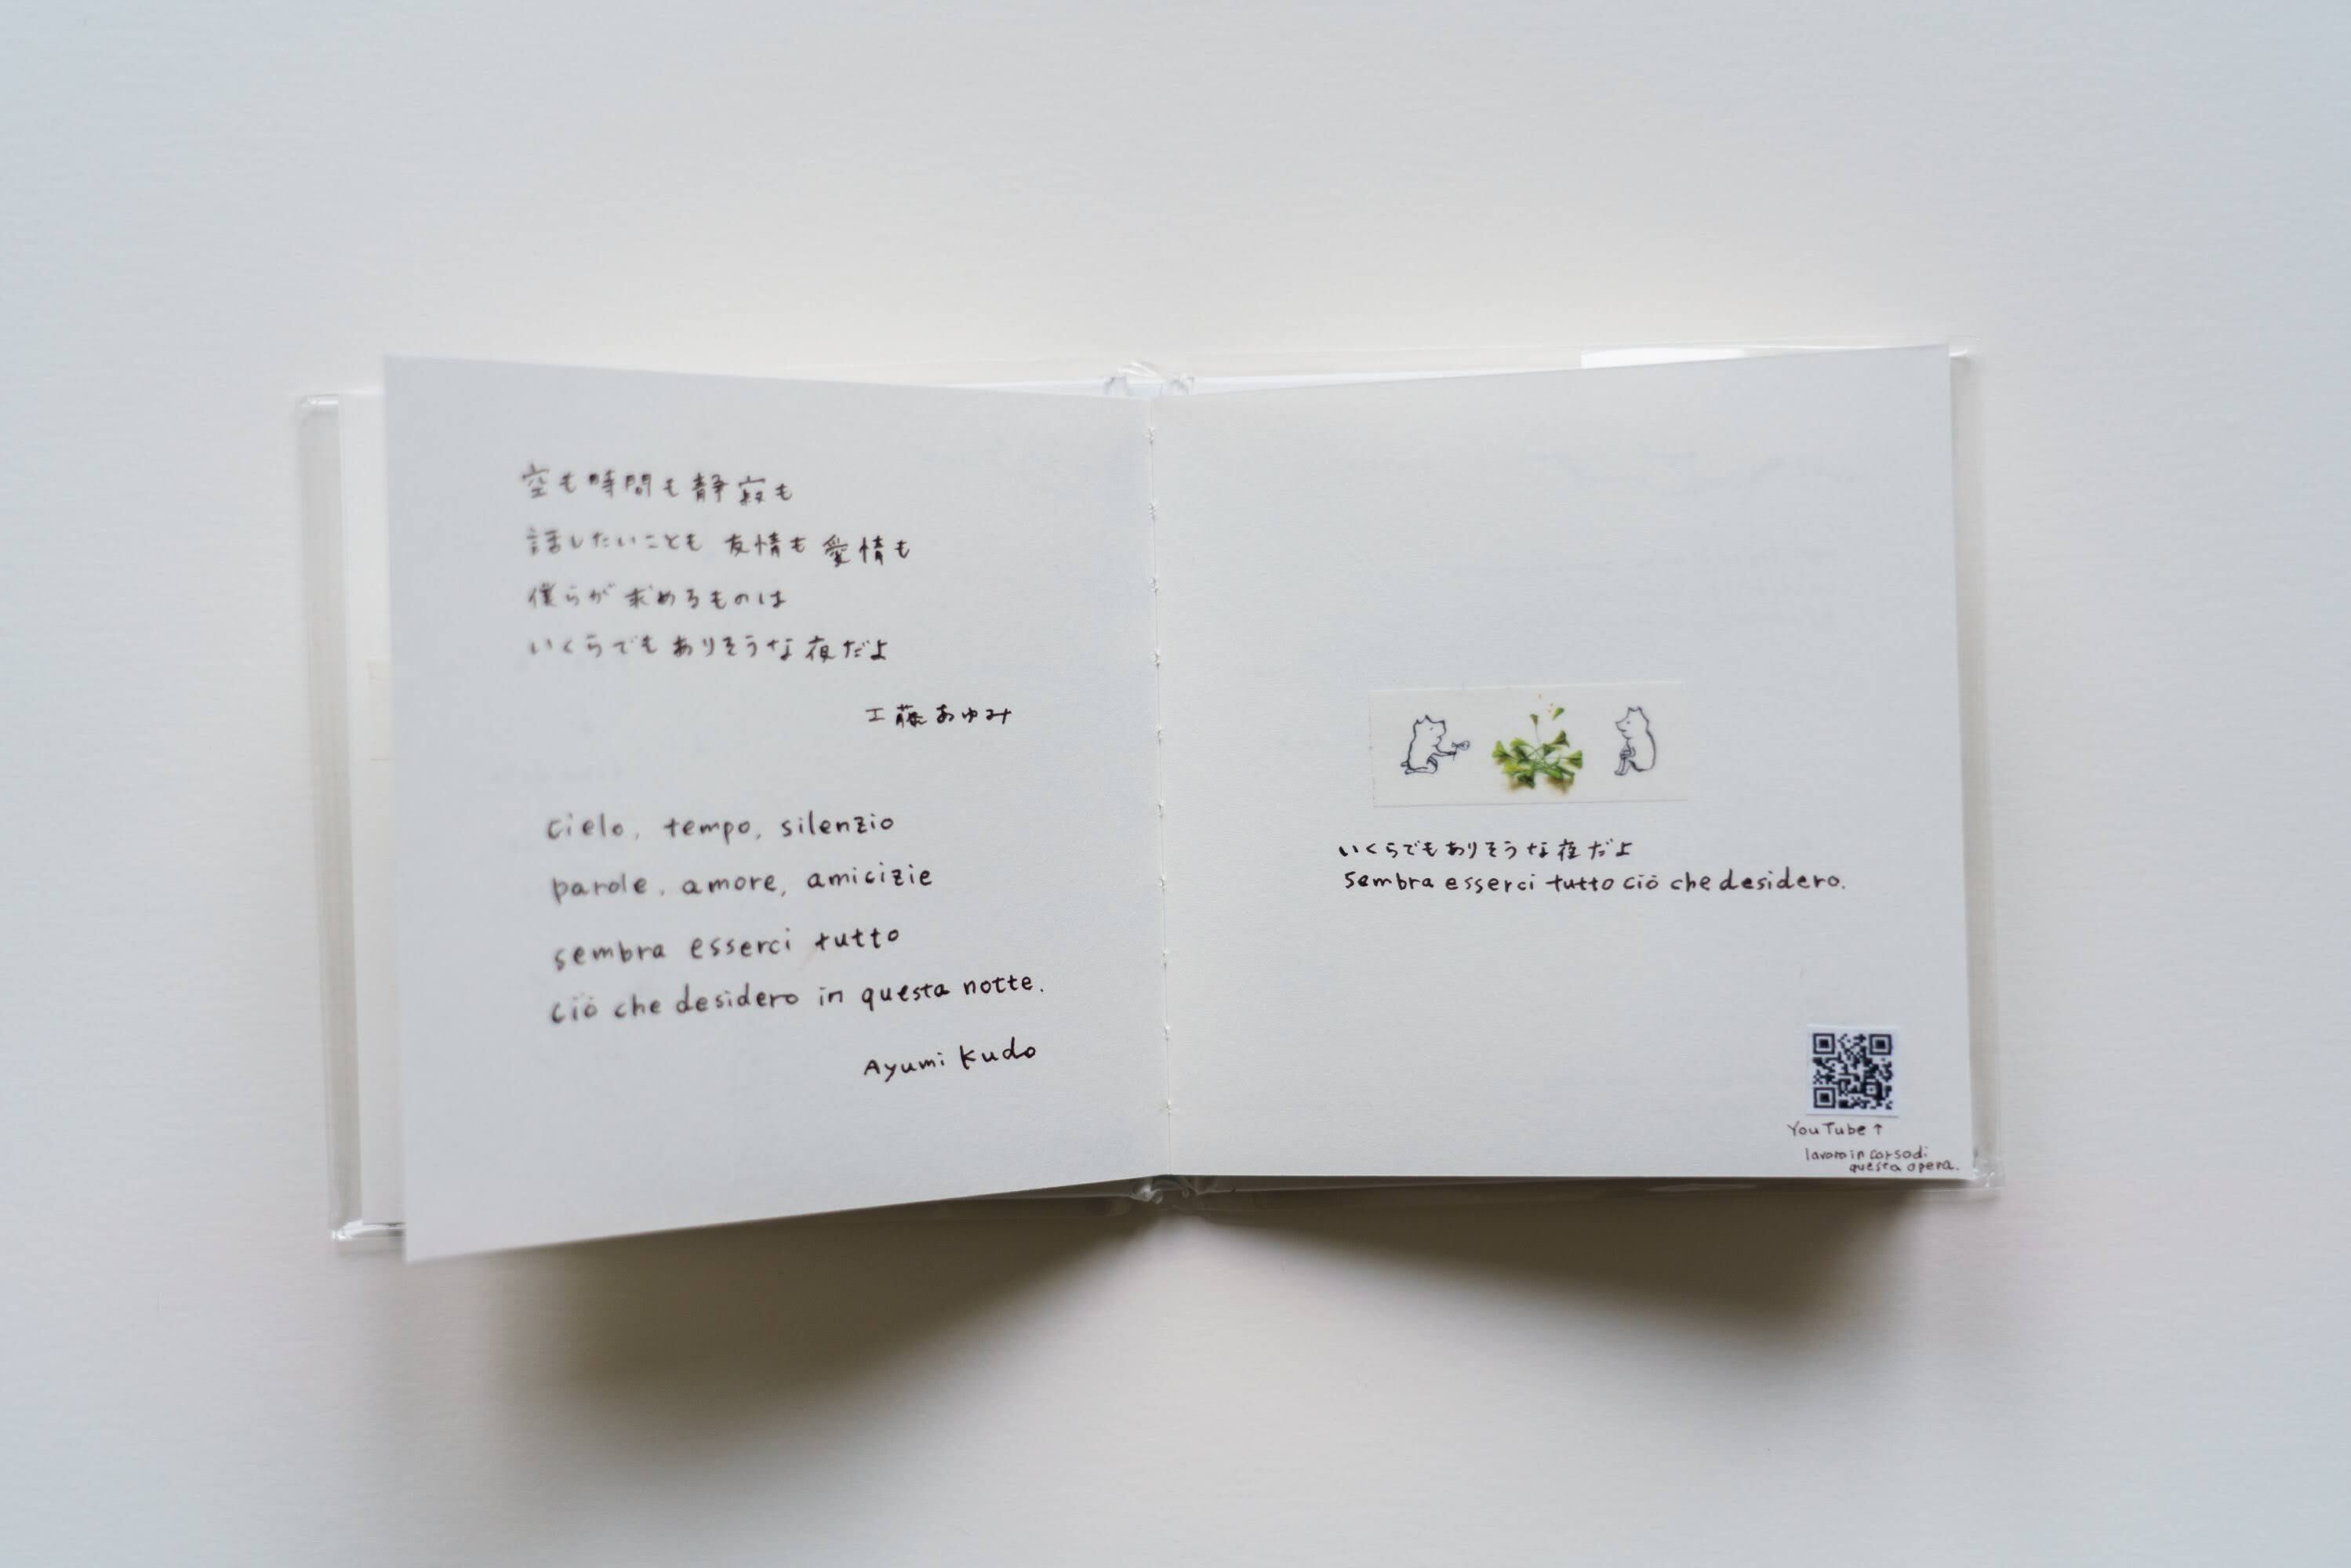 空も時間も静寂も
話したいことも 友情も 愛情も
僕らが 求めるものは
いくらでも ありそうな 夜だよ
工藤あゆみ
cielo, tempo, silenzio
parole, amore, amicizie
sembra esserci tutto
ciò che desidero in questa notte.
Ayumi Kudo
いくらでもありそうな夜だよ
sembra esserci tutto ciò che desidero.
YouTube↑
lavoro in corso di
questa opera.